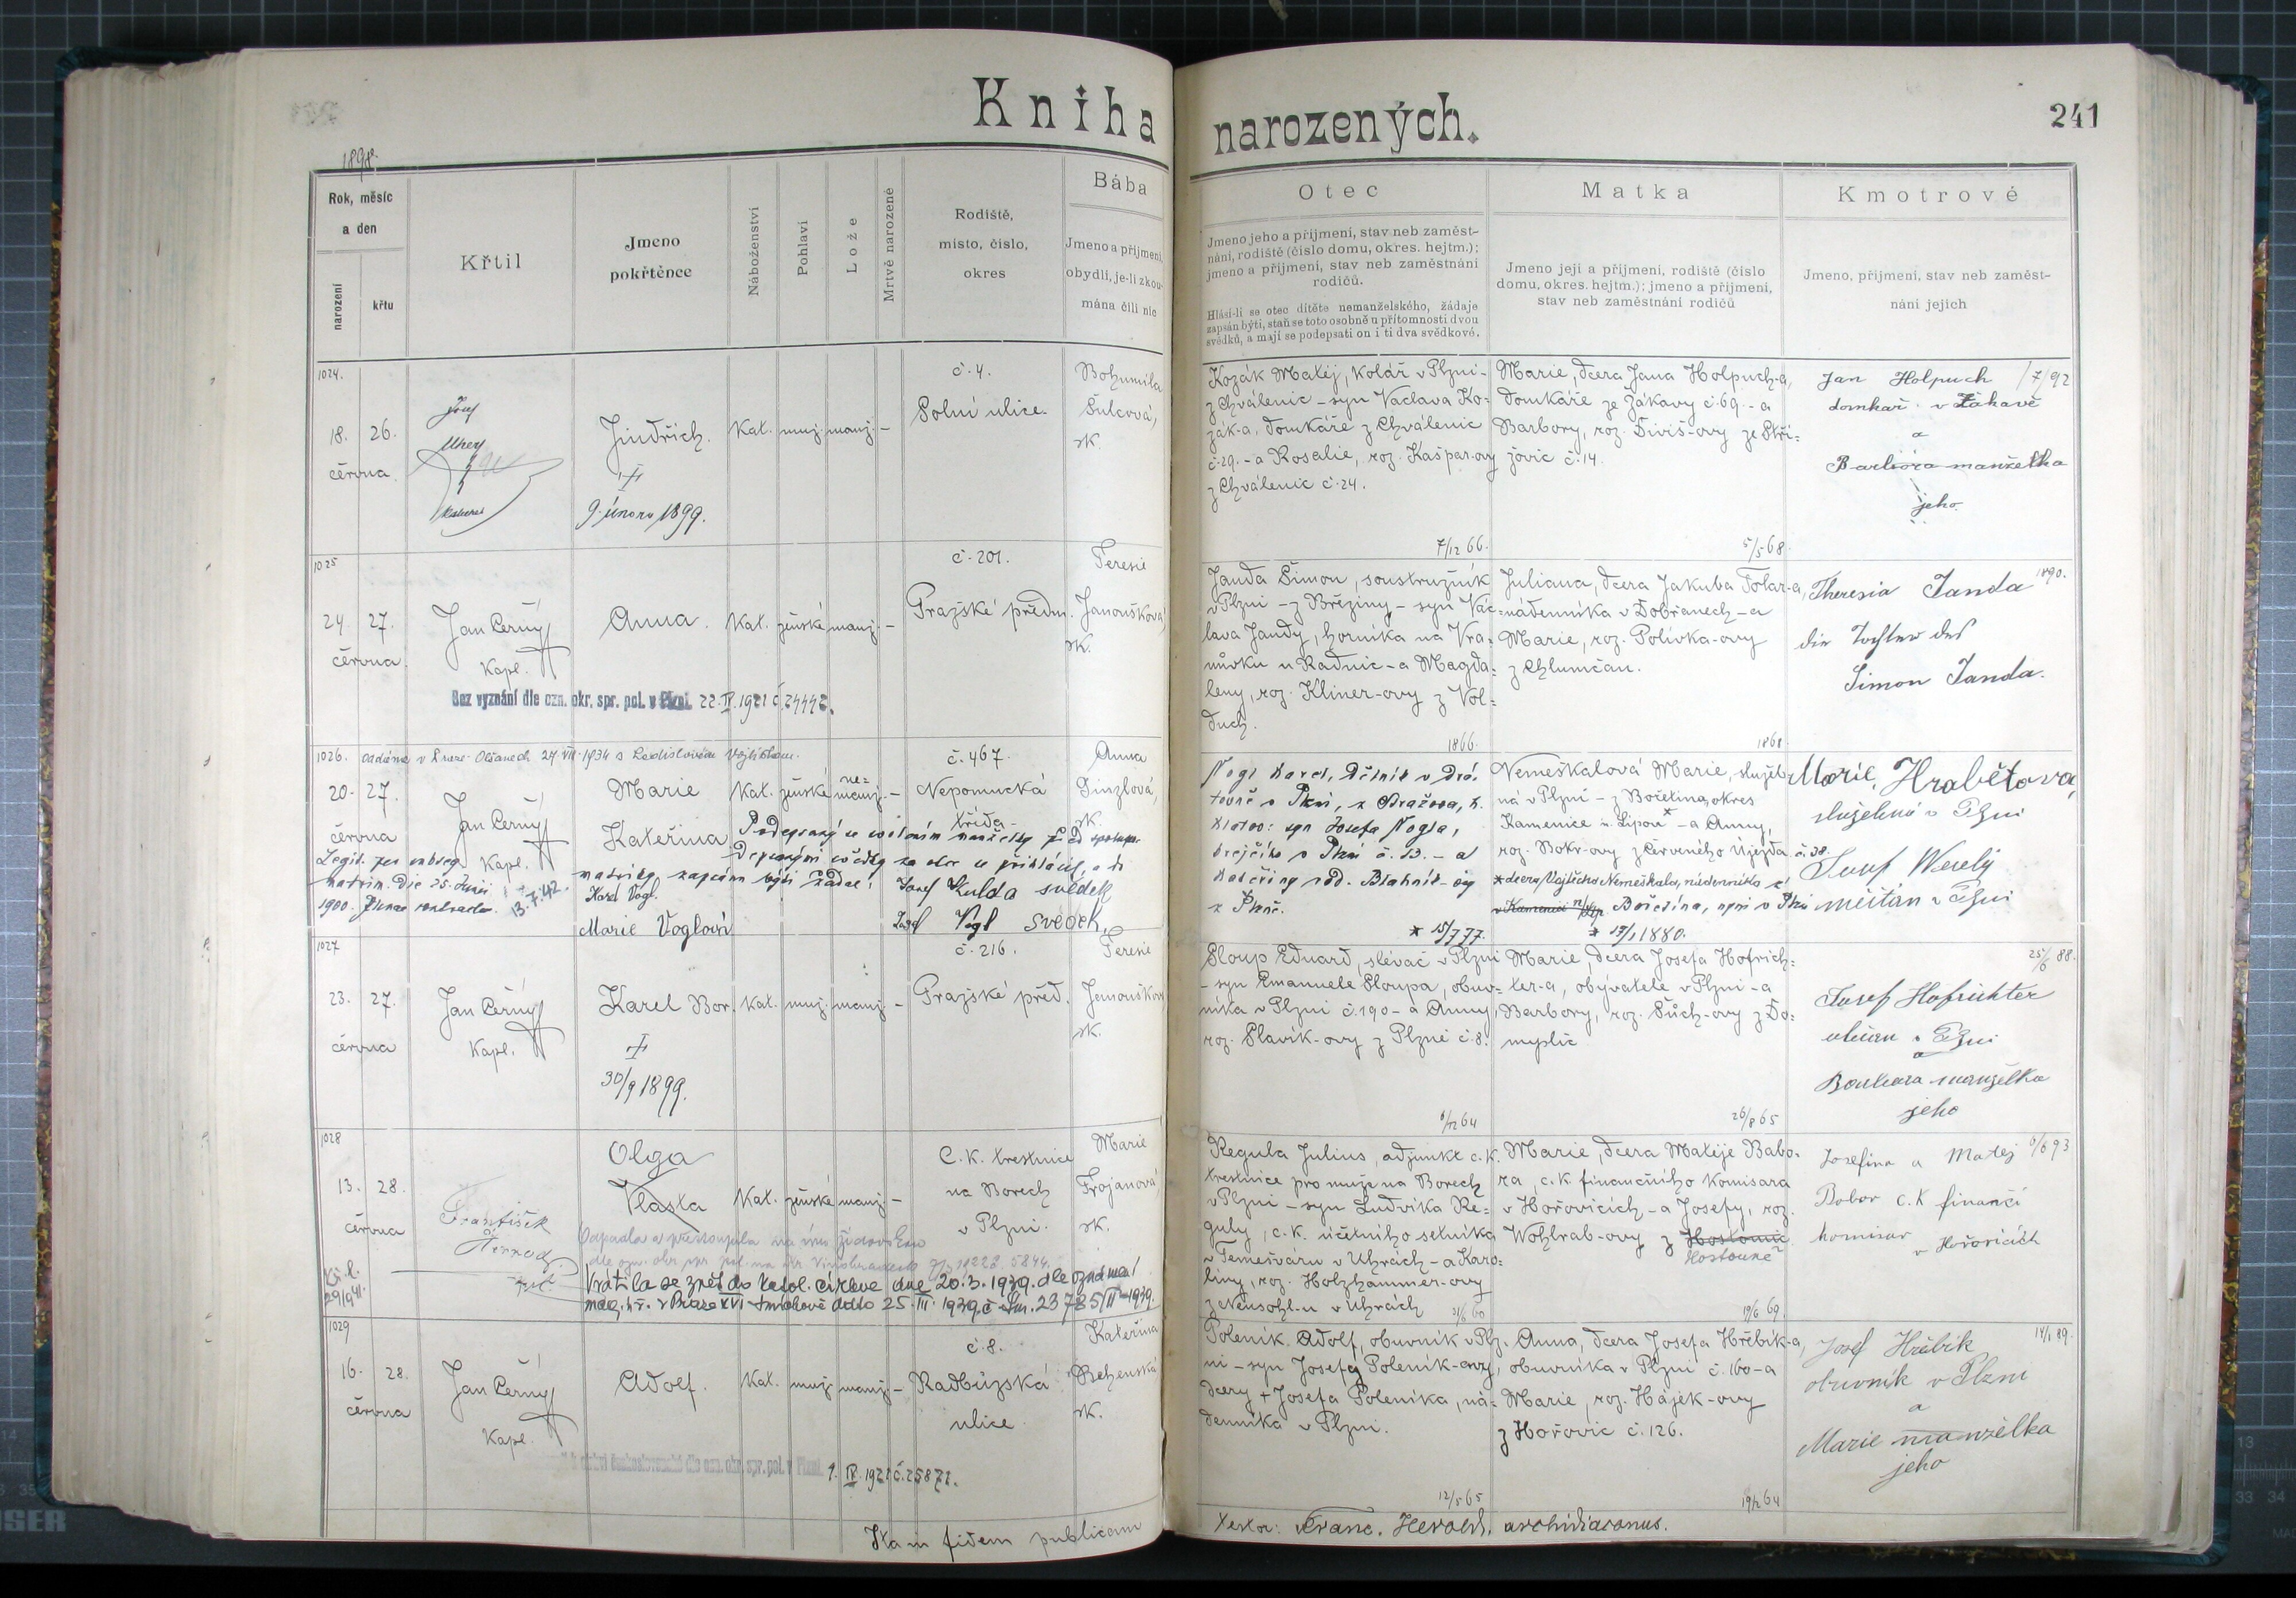 Kniha narozených.
241
1898.
Rok, měsíc a den
narození
křtu
Křtil
Jmeno pokřtěnce
Náboženství
Pohlaví
Lože
Mrtvě narozené
Rodiště, místo, číslo, okres
Bába
Jmeno a příjmení, obydlí, je-li zkoumána čili nic
Otec
Jmeno jeho a příjmení, stav neb zaměst-
nání, rodiště (číslo domu, okres. hejtm.);
jmeno a příjmení, stav neb zaměstnání
rodičů.
Hlásí-li se otec dítěte nemanželského, žádaje
zapsán býti, staň se toto osobně u přítomnosti dvou
svědků, a mají se podepsati on i ti dva svědkové.
Matka
Jmeno její a příjmení, rodiště (číslo
domu, okres. hejtm.); jmeno a příjmení,
stav neb zaměstnání rodičů
Kmotrové
Jmeno, příjmení, stav neb zaměst-
nání jejich
1024.
18. 26.
června
Josef
Jindřich.
9. února 1899.
Kat. muž. manž. -
č. 4.
Solní ulice.
Bohumila
Šulcová,
zk.
Kozák Matěj, kolář v Plzni -
z Chválenic - syn Václava Ko-
zák-a, domkáře z Chválenic
č. 29. - a Rosalie, roz. Kašpar-ovy
z Chválenic č. 24.
7/12 66.
Marie, dcera Jana Holpuch-a,
domkáře ze Žákavy č. 69. - a
Barbory, roz. Diviš-ovy ze Stří-
žovic č. 14.
5/5 68.
Jan Holpuch /7/92
domkař v Žákavě
a
Barbora manželka
jeho
1025
24. 27.
června.
Jan Černý
Kapl.
Anna.
Kat. ženské manž. -
č. 201.
Pražské předm.
Teresie
Janoušková,
zk.
Bez vyznání dle ozn. okr. spr. pol. v Plzni. 22. IV. 1921 č. 24442.
Janda Šimon, soustružník
v Plzni - z Březiny - syn Vác-
lava Jandy, horníka na Vra-
nůvku u Radnic - a Magda-
leny, roz. Kliner-ovy z Vol-
duch.
1866.
Juliana, dcera Jakuba Tolar-a,
nádenníka v Dobřanech - a
Marie, roz. Polívka-ovy
z Chlumčan.
1868
Theresia Janda 1890.
die Tochter des
Simon Janda.
1026. oddána v Praze-Olšanech 24. VII. 1934 s Ladislavem
20. 27.
června
Jan Černý
Kapl.
Marie
Kateřina
Kat. ženské ne-
manž. -
č. 467.
Nepomucká
třída -
Anna
Ginzlová,
zk.
Legit. per subseq.
matrim. die 25. Junii
1900. Plznae contractum.
13.7.42.
Podepsaný se svolením manželky před spolupo-
depsanými svědky za otce se přihlásil, a do
matriky zapsán býti žádal:
Karel Vogl.
Josef Kulda svědek
Marie Voglová
Josef Vogl svědek.
Vogl Karel, dělník v drá-
továrně v Plzni, z Odražova, h.
Klatov: syn Josefa Vogla,
krejčího v Plzni č. 13. - a
Kateřiny rod. Blahník-ovy
z Plzně.
* 15/7 77.
Nemeškalová Marie, služeb-
ná v Plzni - z Bořetína, okres
Kamenice n. Lipou* - a Anny,
roz. Bokr-ovy z Červeného Újezda č. 38.
* dcera Vojtěcha Nemeškala, nádenníka z
Bořetína, nyní v Plzni
* 19/1 1880.
Marie Hrabětova,
služebná v Plzni
Josef Weselý
měšťan v Plzni
1027
23. 27.
června
Jan Černý
Kapl.
Karel Bor.
30/9 1899.
Kat. muž. manž. -
č. 216.
Pražské před.
Teresie
Janoušková
zk.
Sloup Eduard, slévač v Plzni
- syn Emanuele Sloupa, obuv-
níka v Plzni č. 190 - a Anny,
roz. Slavík-ovy z Plzně č. 8.
6/12 64
Marie, dcera Josefa Hofrich-
ter-a, obyvatele v Plzni - a
Barbory, roz. Šůch-ovy z Do-
myslic
26/8 65
25/6 88.
Josef Hofrichter
občan v Plzni
a
Barbora manželka
jeho
1028
13. 28.
června
František
Olga
Vlasta
Kat. ženské manž. -
C. k. trestnice
na Borech
v Plzni.
Marie
Trojanová,
zk.
Odpadla a přestoupila na víru židovskou
Vrátila se zpět do katol. církve dne 20.3.1939. dle oznámení
mag. hl. v Praze XVI - Smíchově ddto 25. III. 1939 č. Sm. 23785/II-1939.
29/9 41.
Regula Julius, adjunkt c. k.
trestnice pro muže na Borech
v Plzni - syn Ludvíka Re-
guly, c. k. účetního setníka
v Temešváru v Uhrách - a Karo-
liny, roz. Holzhammer-ovy
z Neusohl-u v Uhrách
21/6 60
Marie, dcera Matěje Babo-
ra, c. k. finančního komisara
v Hořovicích - a Josefy, roz.
Wohlrab-ovy z Hostomic
Hostouně
19/6 69.
Josefina a Matěj 6/6 93
Bobor c. k finanční
komisar
v Hořovicích
1029
16. 28.
června
Jan Černý
Kapl.
Adolf.
Kat. muž manž. -
č. 8.
Radbůzská
ulice.
Kateřina
zk.
československé dle ozn. okr. spr. pol. v Plzni 1. IV. 1921 č. 25872.
Poleník Adolf, obuvník v Plz-
ni - syn Josefy Poleník-ovy,
dcery + Josefa Poleníka, ná-
denníka v Plzni.
12/5 65
Anna, dcera Josefa Hřebík-a,
obuvníka v Plzni č. 160 - a
Marie, roz. Hájek-ovy
z Hořovic č. 126.
19/2 64
Josef Hřebík 14/1 89.
obuvník v Plzni
a
Marie manželka
jeho
Ita in fidem publicam
testor: Franc. Herold, archidiaconus.